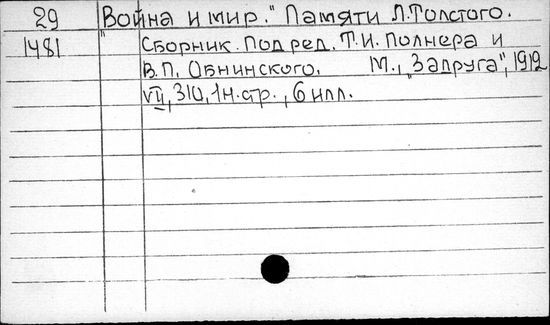 29 Война и мир." Памяти Л.Толстого.
1481 " Сборник. Под ред. Т.И. Полнера и
В.П. Обнинского. М., "Задруга", 1912
VII, 310, 1н.стр., 6 илл.